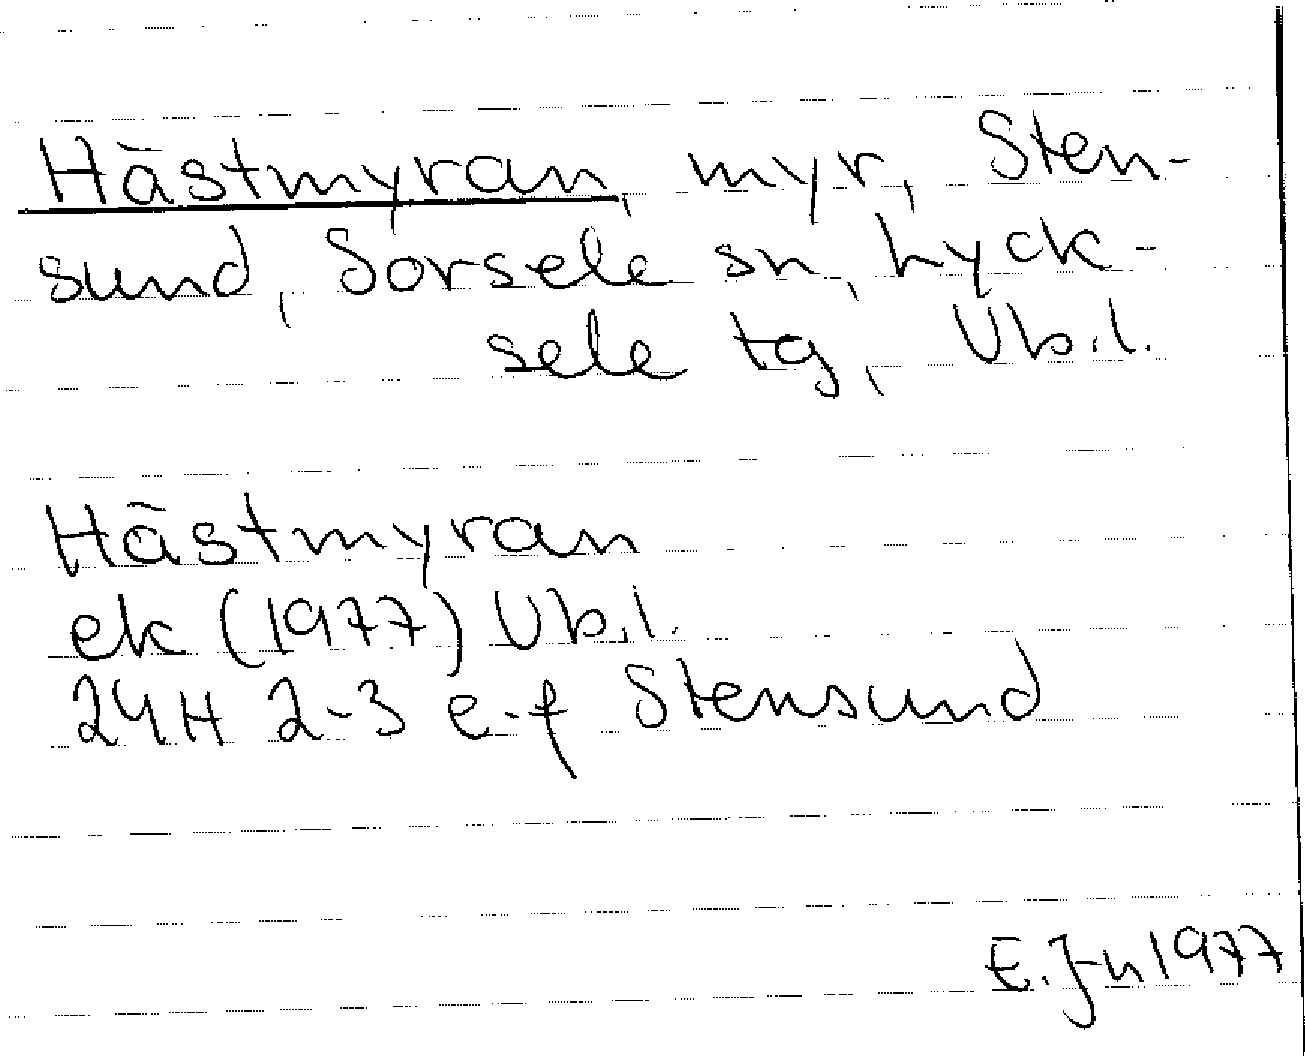 Hästmyran, myr, Sten-
sund, Sorsele sn, Lyck-
sele tg, Vb.l.
Hästmyran
ek (1977) Vb.l.
24H 2-3 e-f Stensund
E. Jn 1977